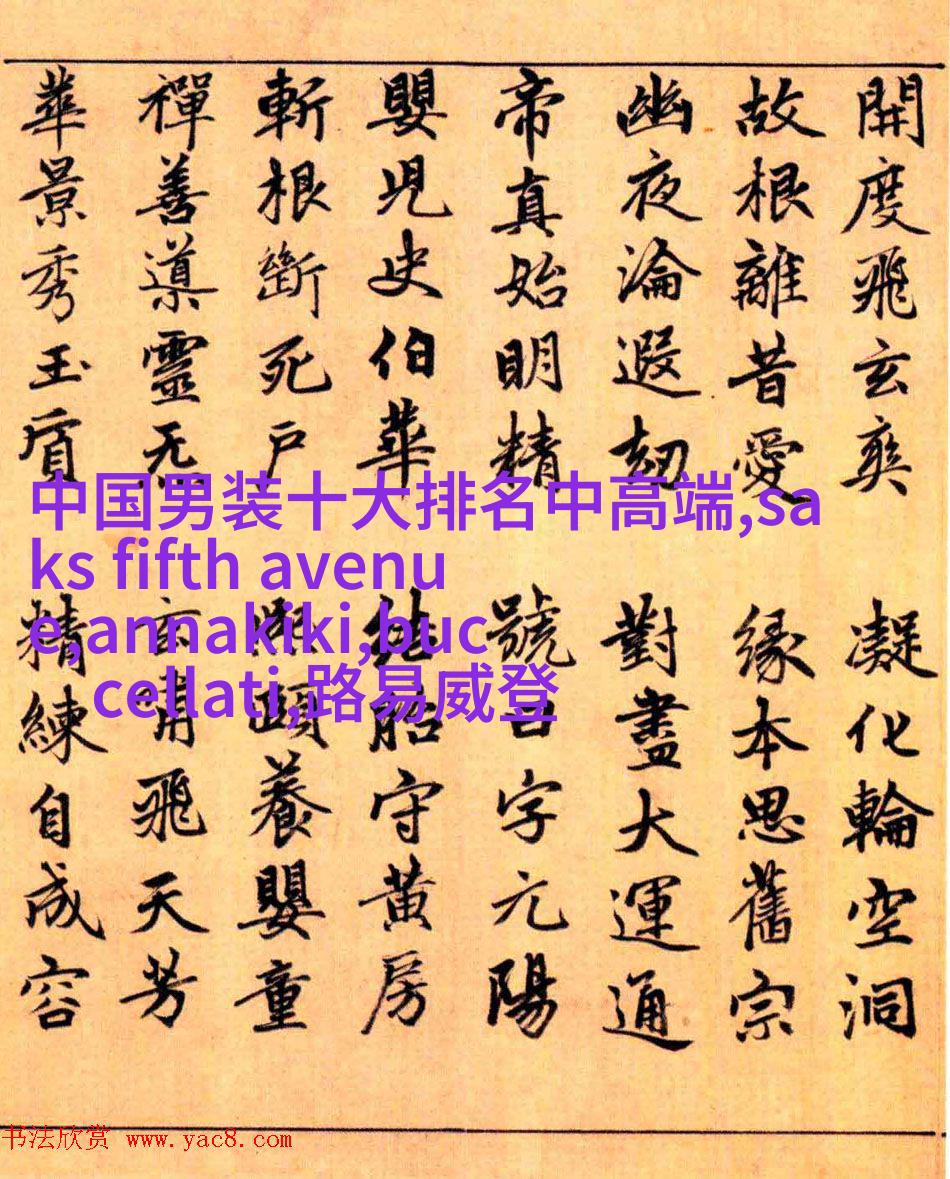 開度飛玄爽 凝化輪空洞
故根離昔愛 縁本思舊宗
幽夜淪遐刧 對盡大運通
帝真始明精 號曰字元陽
嬰兒史伯華 結胎守黃房
斬根斷死戶 頤養嬰童
禪善導靈无 玄嘯飛天芳
華景秀玉質 精練自成容
中国男装十大排名中高端,sa
ks fifth avenu
e,annakiki,buc
cellati,路易威登
书法欣赏 www.yac8.com